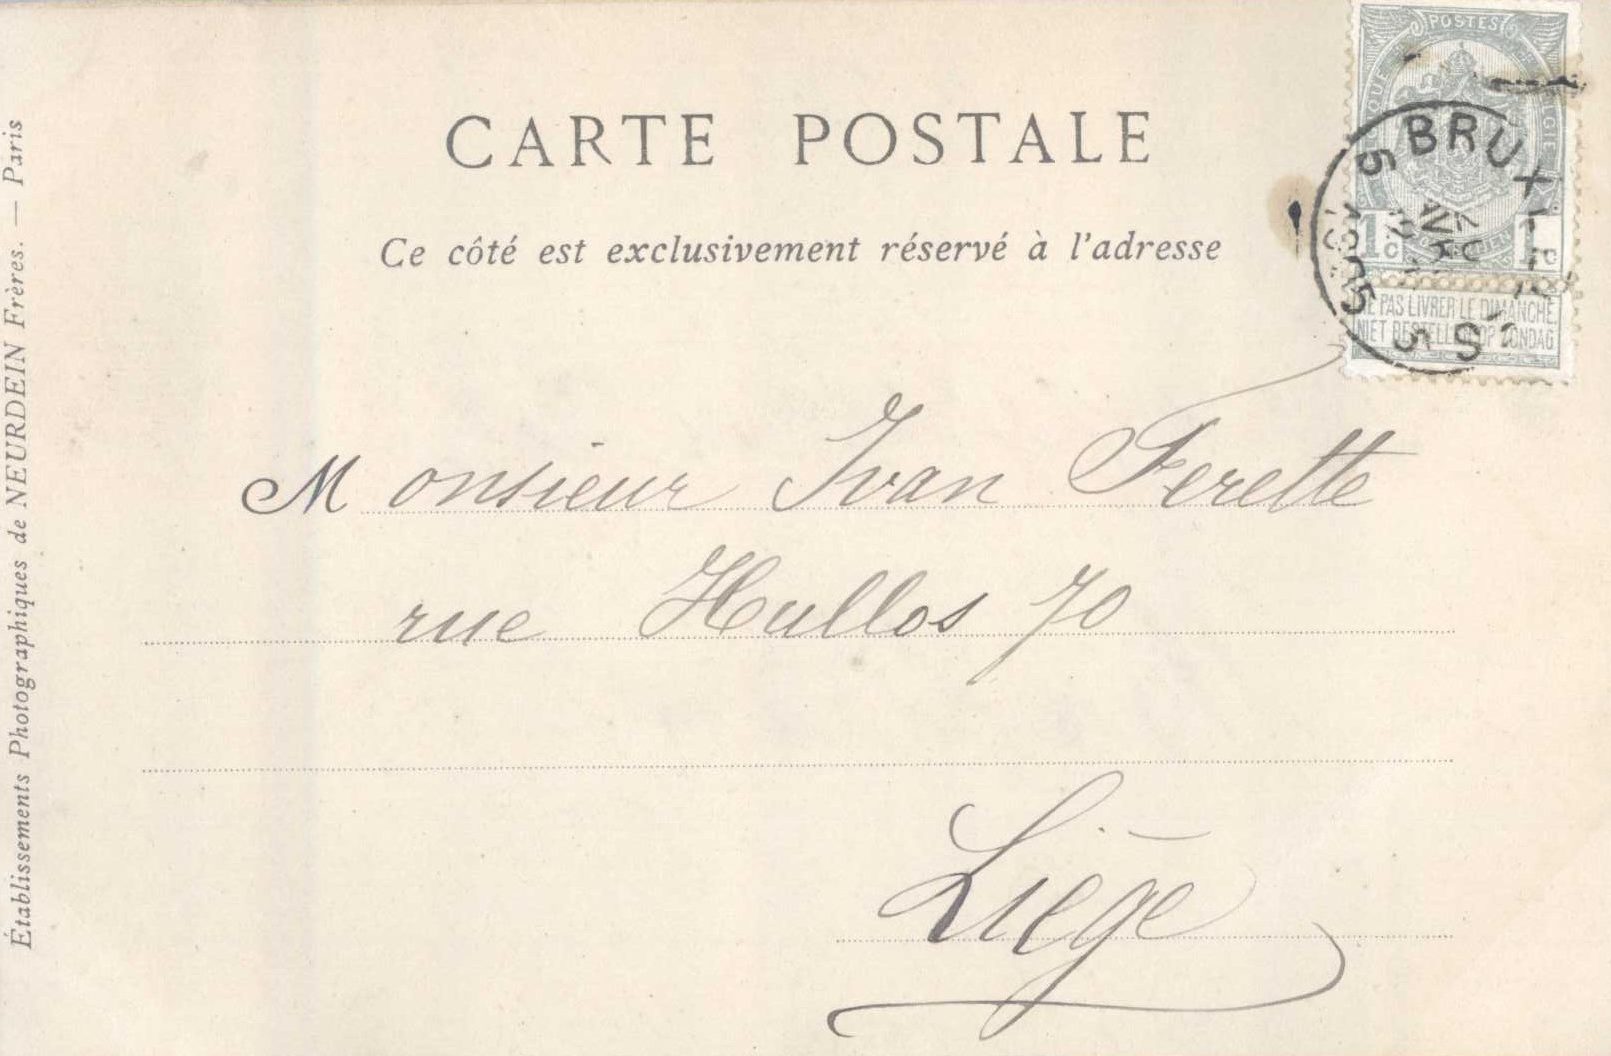 CARTE POSTALE
Ce côté est exclusivement réservé à l'adresse
Monsieur Ivan Ferette
rue Hullos 70
Liège
Établissements Photographiques de NEURDEIN Frères. — Paris
POSTES
1c 1c
NE PAS LIVRER LE DIMANCHE
NIET BESTELLEN OP ZONDAG
BRUX
1905
5
5